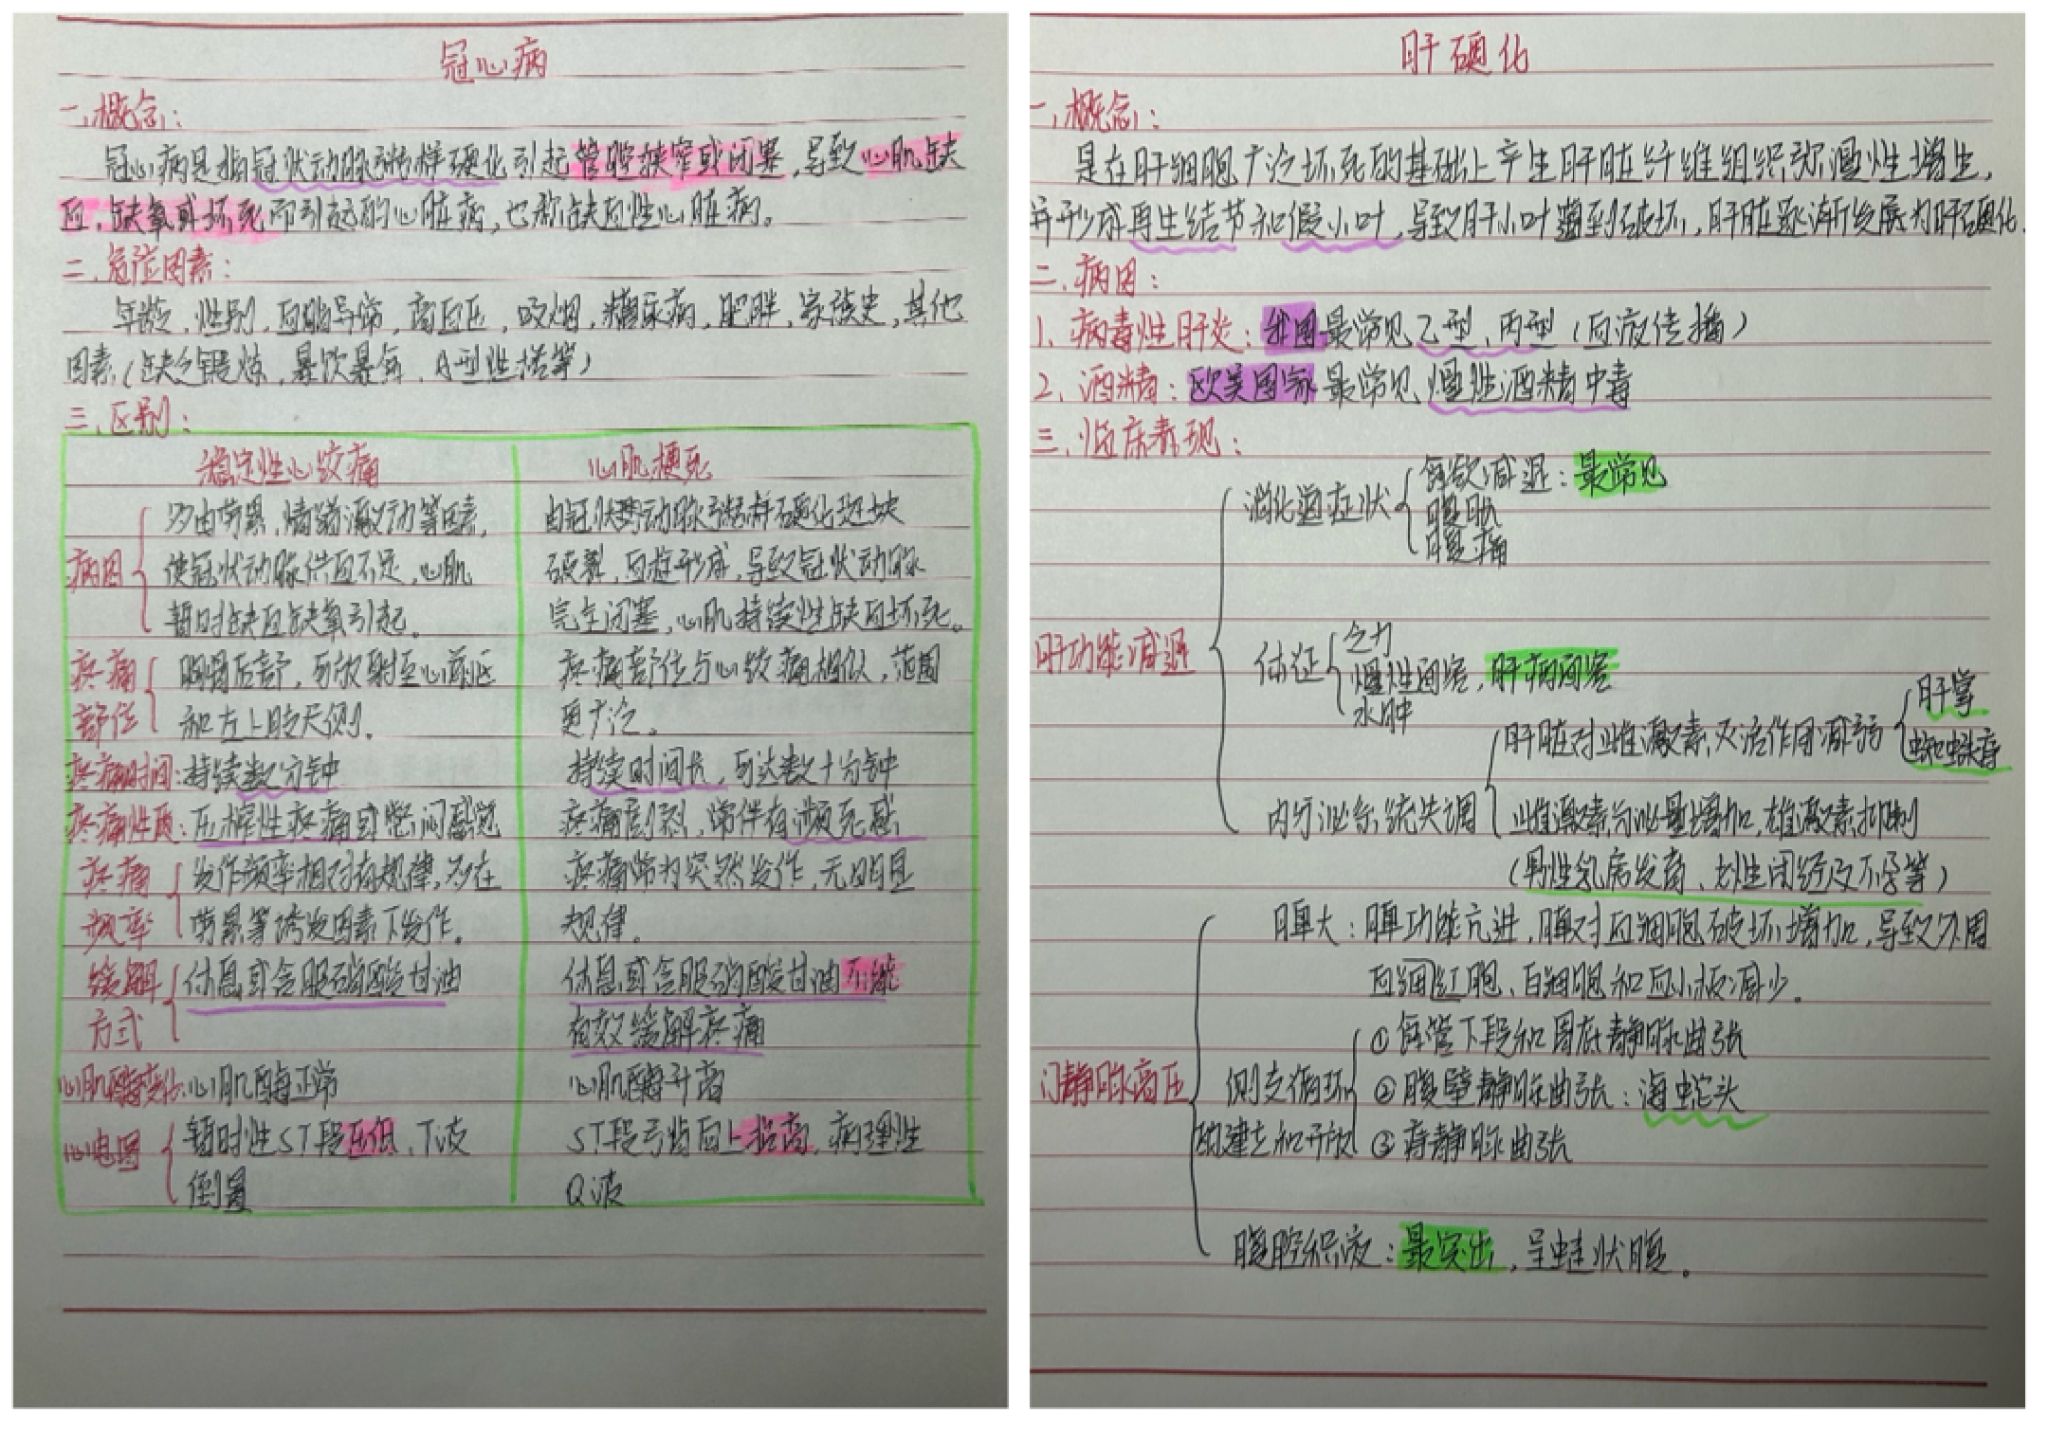 冠心病
一、概念：
冠心病是指冠状动脉粥样硬化引起管腔狭窄或闭塞，导致心肌缺
血、缺氧或坏死而引起的心脏病，也称缺血性心脏病。
二、危险因素：
年龄、性别、血脂异常，高血压，吸烟，糖尿病，肥胖，家族史，其他
因素（缺乏锻炼，暴饮暴食，A型性格等）
三、区别：
稳定性心绞痛 心肌梗死
病因
多由劳累，情绪激动等因素，
使冠状动脉供血不足，心肌
暂时缺血缺氧引起。
由冠状动脉粥样硬化斑块
破裂，血栓形成，导致冠状动脉
完全闭塞，心肌持续性缺血坏死。
疼痛
部位
胸骨后部，可放射至心前区
和左上肢尺侧。
疼痛部位与心绞痛相似，范围
更广泛。
疼痛时间：持续数分钟
持续时间长，可达数十分钟
疼痛性质：压榨性疼痛或憋闷感觉
疼痛剧烈，常伴有濒死感
疼痛
频率
发作频率相对有规律，多在
劳累等诱发因素下发作。
疼痛常为突然发作，无明显
规律。
缓解
方式
休息或含服硝酸甘油
休息或含服硝酸甘油不能
有效缓解疼痛
心肌酶变化：心肌酶正常
心肌酶升高
心电图
暂时性ST段压低，T波
倒置
ST段弓背向上抬高，病理性
Q波
肝硬化
一、概念：
是在肝细胞广泛坏死的基础上产生肝脏纤维组织弥漫性增生，
并形成再生结节和假小叶，导致肝小叶遭到破坏，肝脏逐渐发展为肝硬化.
二、病因：
1、病毒性肝炎：我国最常见乙型、丙型（血液传播）
2、酒精：欧美国家最常见 慢性酒精中毒
三、临床表现：
肝功能减退
消化道症状
食欲减退：最常见
腹胀
腹痛
体征
乏力
慢性面容，肝病面容
水肿
内分泌系统失调
肝脏对雌激素灭活作用减弱
肝掌
蜘蛛痣
雌激素分泌量增加，雄激素抑制
（男性乳房发育、女性闭经及不孕等）
门静脉高压
脾大：脾功能亢进，脾对血细胞破坏增加，导致外周
血细红胞、白细胞和血小板减少。
侧支循环
的建立和开放
①食管下段和胃底静脉曲张
②腹壁静脉曲张：海蛇头
③痔静脉曲张
腹腔积液：最突出，呈蛙状腹。